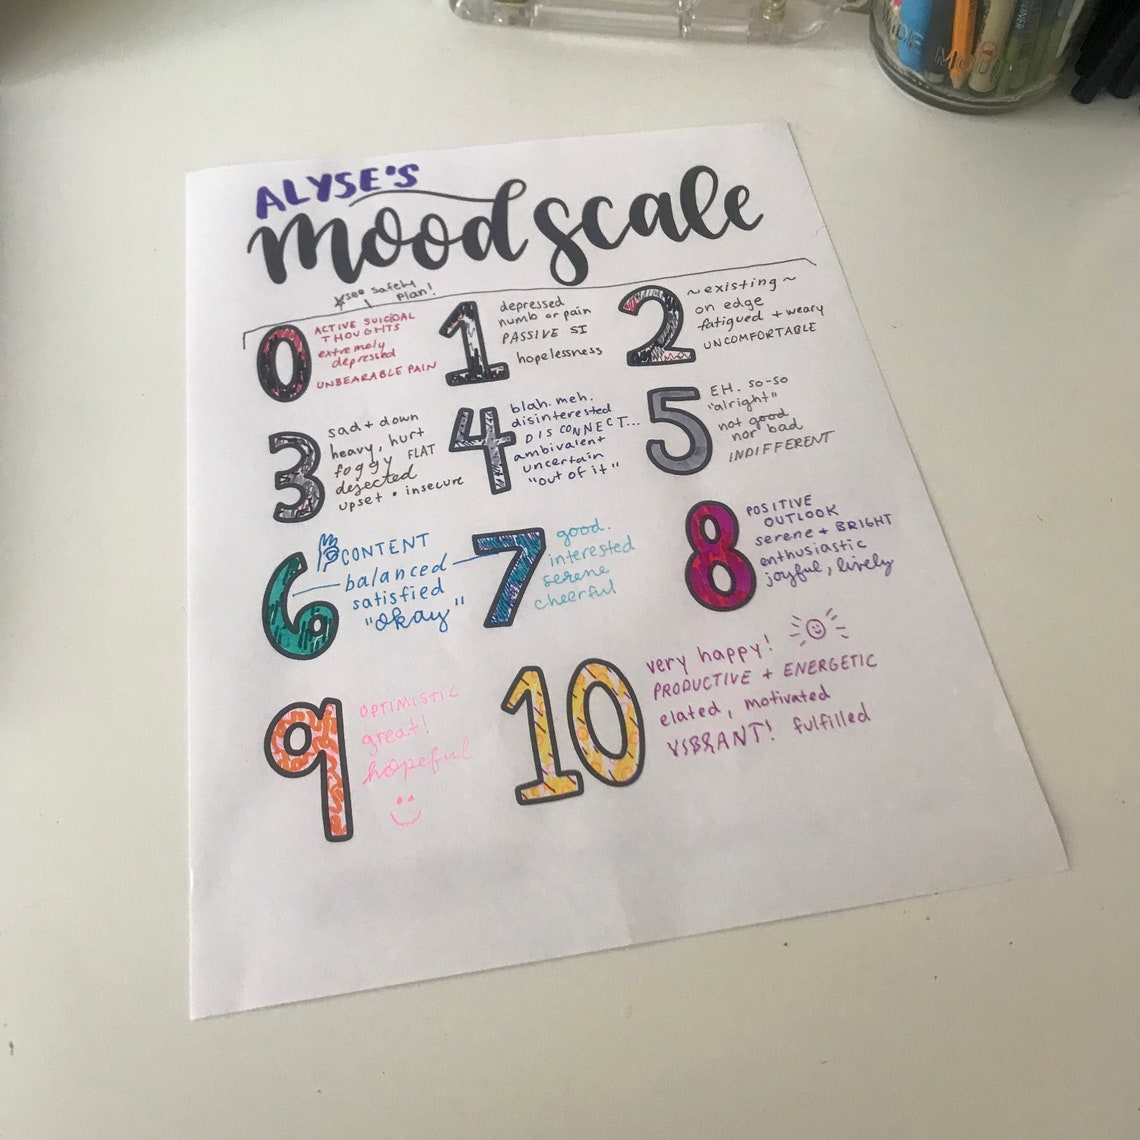 ALYSE'S
mood scale
*see safety
plan!
0
ACTIVE SUICIDAL
THOUGHTS
extremely
depressed
UNBEARABLE PAIN
1
depressed
numb or pain
PASSIVE SI
hopelessness
2
~existing~
on edge
fatigued + weary
UNCOMFORTABLE
3
sad + down
heavy, hurt
foggy FLAT
dejected
upset • insecure
4
blah. meh.
disinterested
DISCONNECT...
ambivalent
uncertain
"out of it"
5
EH. so-so
"alright"
not good
nor bad
INDIFFERENT
6
CONTENT
balanced
satisfied
"okay"
7
good.
interested
serene
cheerful
8
POSITIVE
OUTLOOK
serene + BRIGHT
enthusiastic
joyful, lively
9
OPTIMISTIC
great!
hopeful
10
very happy!
PRODUCTIVE + ENERGETIC
elated, motivated
VIBRANT! fulfilled